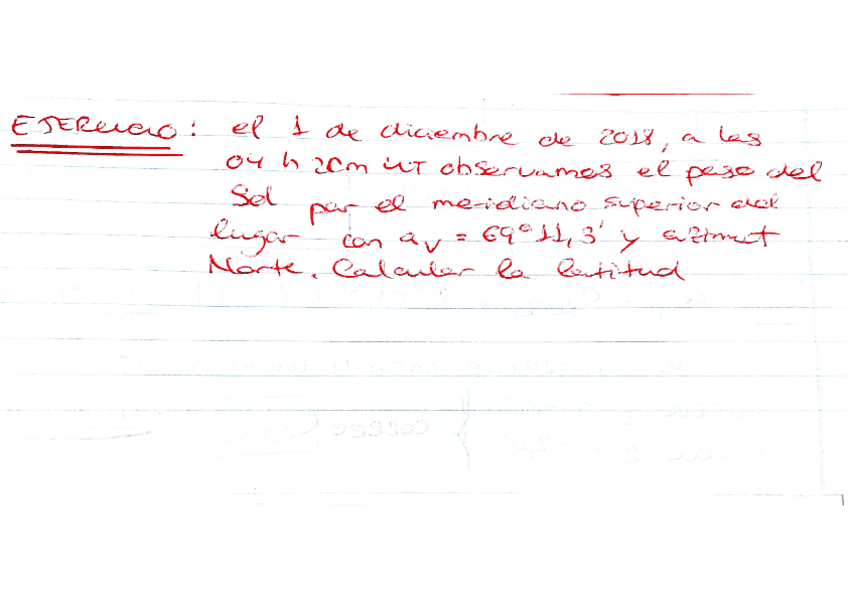 EJERCICIO: el 1 de diciembre de 2018, a las
04 h 20m UT observamos el paso del
Sol por el meridiano superior del
lugar con av = 69° 11,3' y azimut
Norte. Calcular la latitud